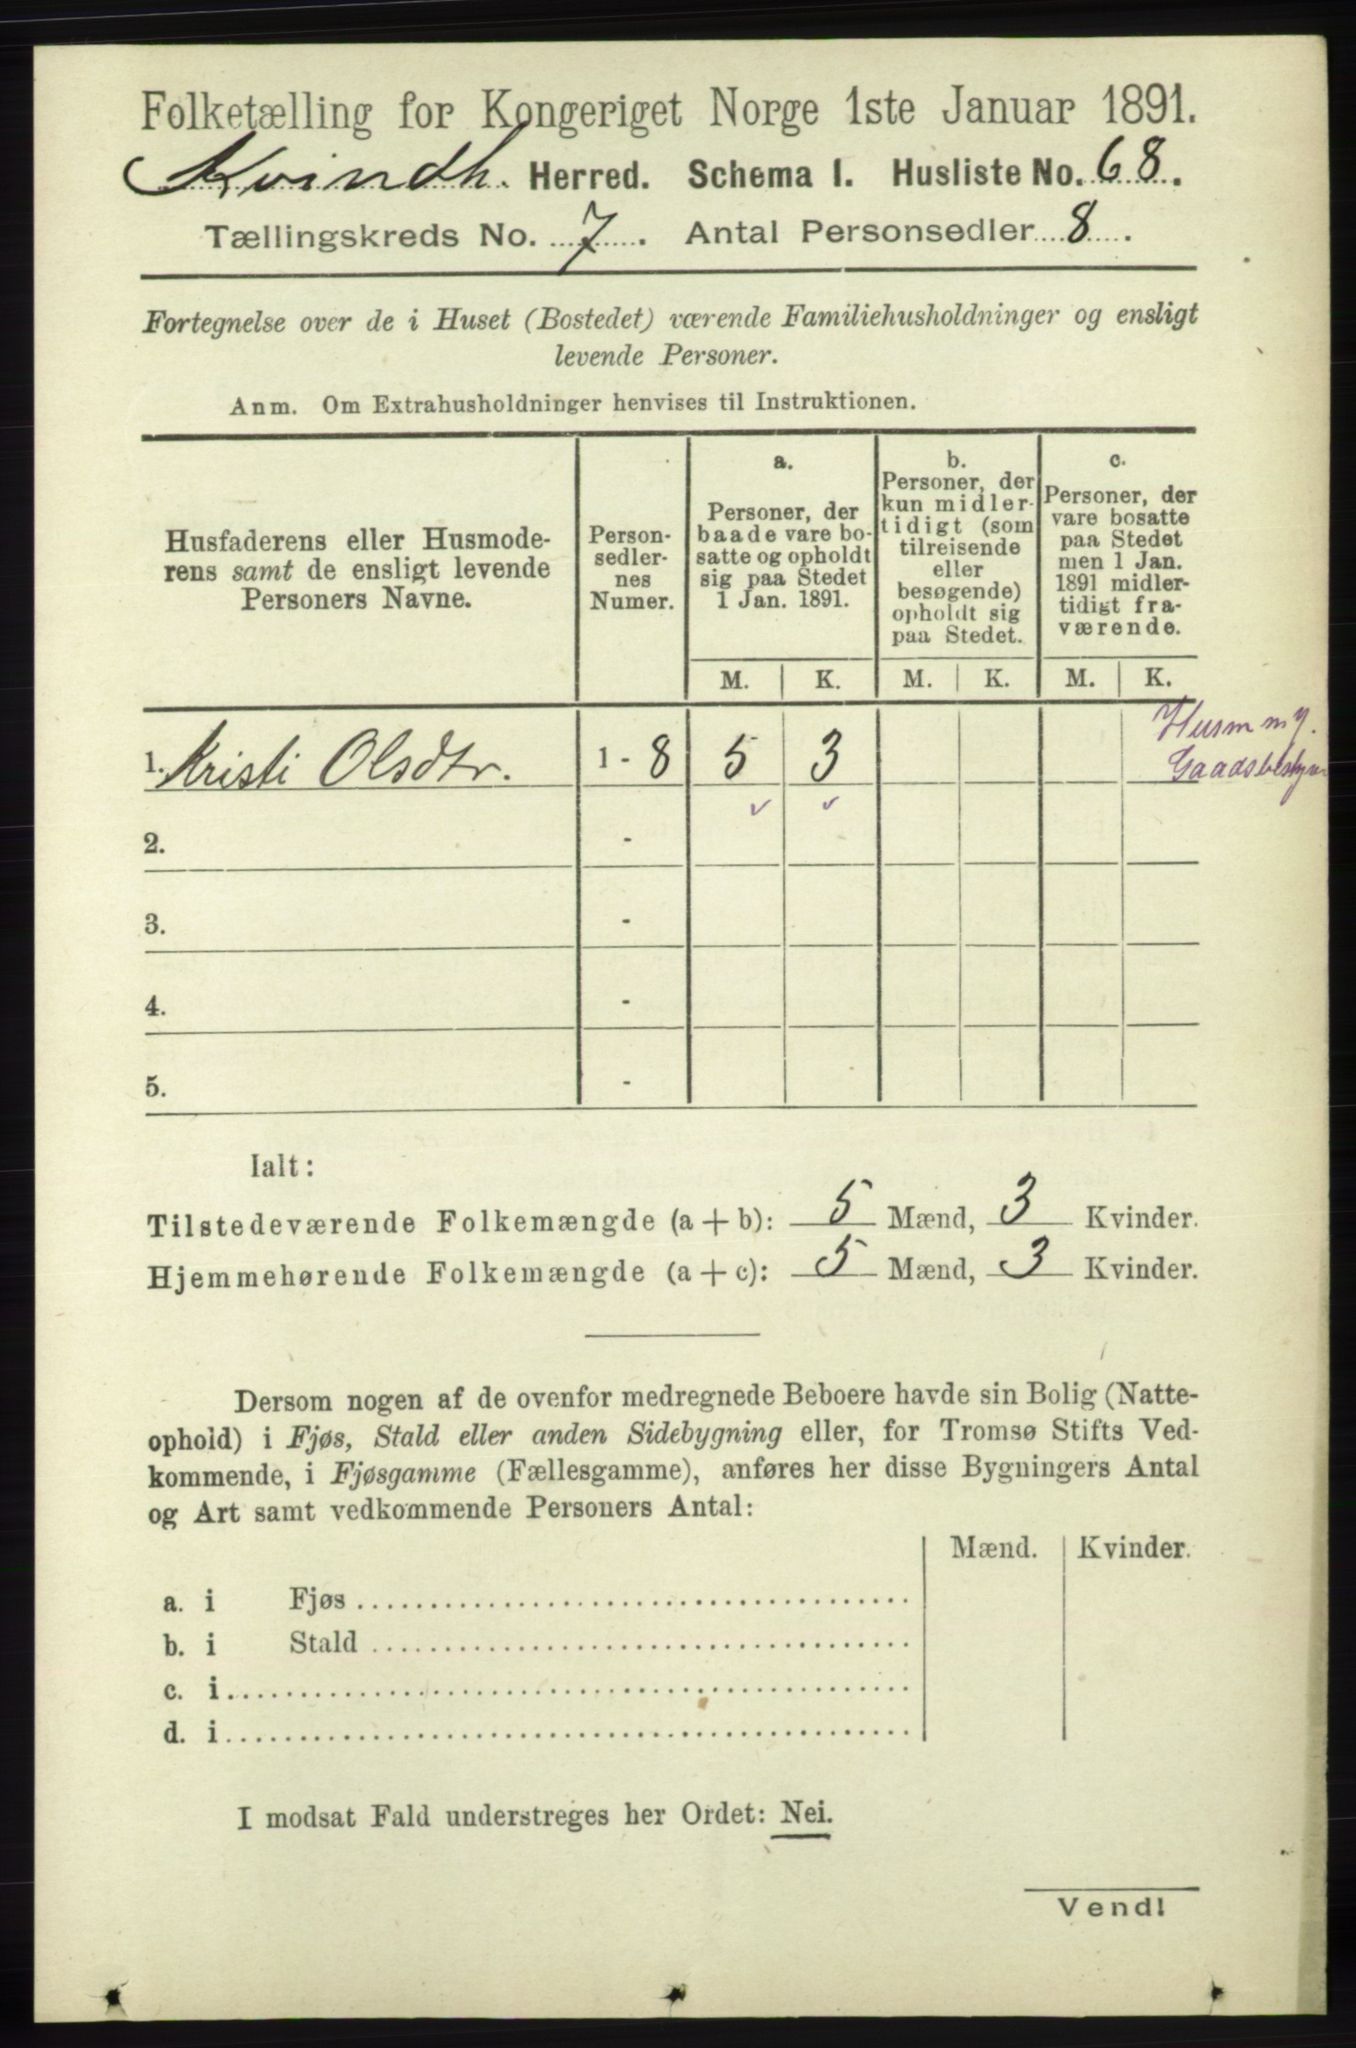 Folketælling for Kongeriget Norge 1ste Januar 1891.
Kvindh. Herred. Schema I. Husliste No. 68.
Tællingskreds No. 7. Antal Personsedler 8.
Fortegnelse over de i Huset (Bostedet) værende Familiehusholdninger og ensligt
levende Personer.
Anm. Om Extrahusholdninger henvises til Instruktionen.
Husfaderens eller Husmode-
rens samt de ensligt levende
Personers Navne.
Person-
sedler-
nes
Numer.
a.
Personer, der
baade vare bo-
satte og opholdt
sig paa Stedet
1 Jan. 1891.
b.
Personer, der
kun midler-
tidigt (som
tilreisende
eller
besøgende)
opholdt sig
paa Stedet.
c.
Personer, der
vare bosatte
paa Stedet
men 1 Jan.
1891 midler-
tidigt fra-
værende.
M. K. M. K. M. K.
Husm m J.
1. Kristi Olsdtr. 1 - 8 5 3
2. -
3. -
4. -
5. -
Ialt:
Tilstedeværende Folkemængde (a + b): 5 Mænd, 3 Kvinder.
Hjemmehørende Folkemængde (a + c): 5 Mænd, 3 Kvinder.
Dersom nogen af de ovenfor medregnede Beboere havde sin Bolig (Natte-
ophold) i Fjøs, Stald eller anden Sidebygning eller, for Tromsø Stifts Ved-
kommende, i Fjøsgamme (Fællesgamme), anføres her disse Bygningers Antal
og Art samt vedkommende Personers Antal:
Mænd. Kvinder.
a. i Fjøs
b. i Stald
c. i
d. i
I modsat Fald understreges her Ordet: Nei.
Vend!